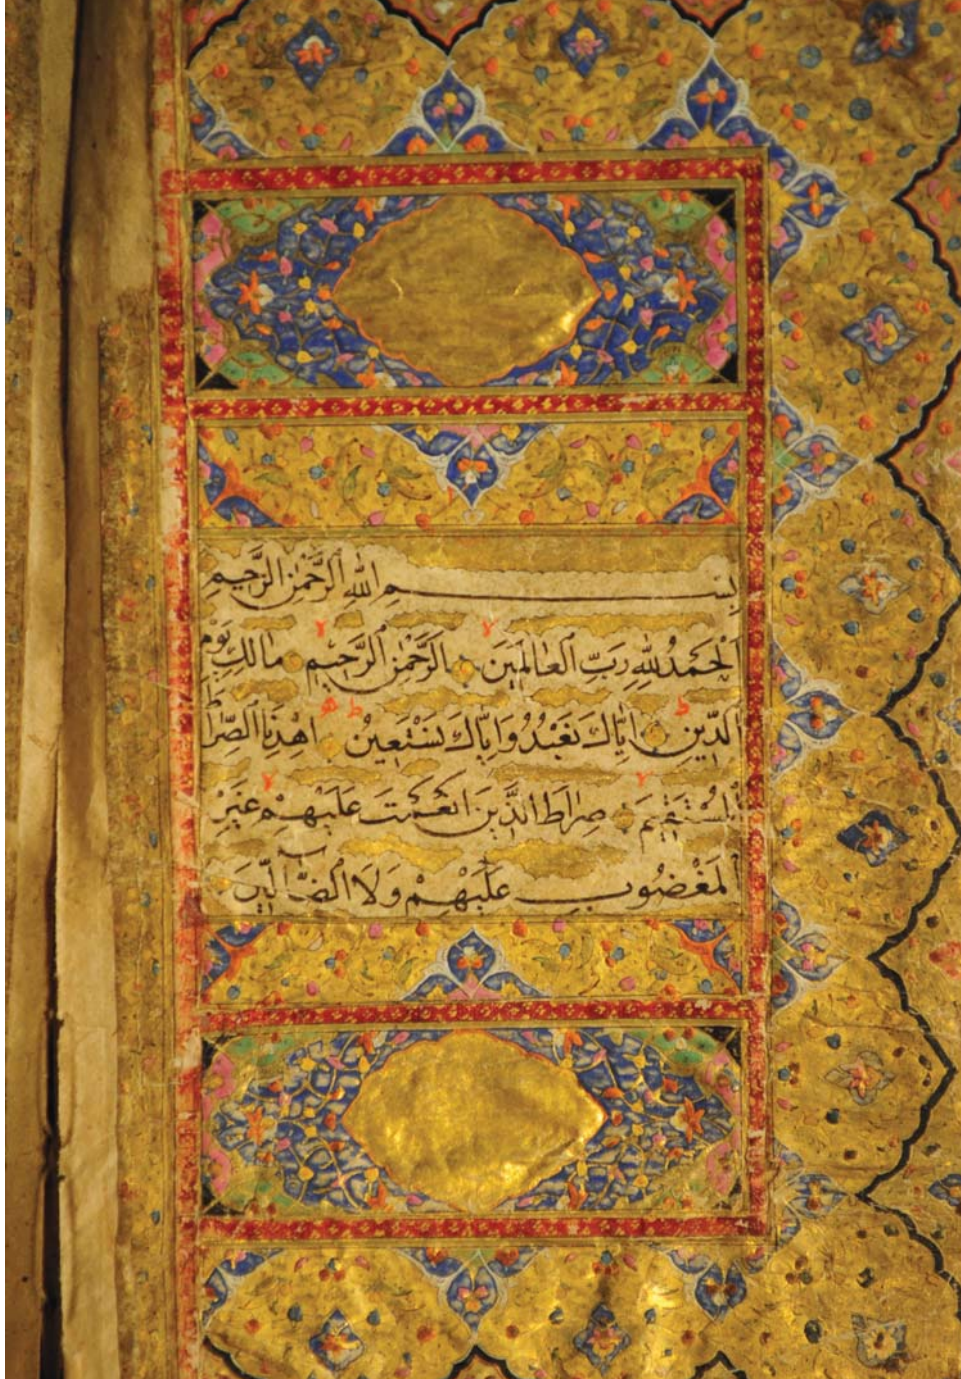 بِسْمِ اللهِ الرَّحْمٰنِ الرَّحِيمِ
اَلْحَمْدُ لِلّٰهِ رَبِّ الْعَالَمِينَ لا الرَّحْمٰنِ الرَّحِيمِ لا مَالِكِ يَوْمِ
الدِّينِ ط اِيَّاكَ نَعْبُدُ وَاِيَّاكَ نَسْتَعِينُ ط اِهْدِنَا الصِّرَاطَ
الْمُسْتَقِيمَ لا صِرَاطَ الَّذِينَ اَنْعَمْتَ عَلَيْهِمْ لا غَيْرِ
الْمَغْضُوبِ عَلَيْهِمْ وَلَا الضَّالِّينَ